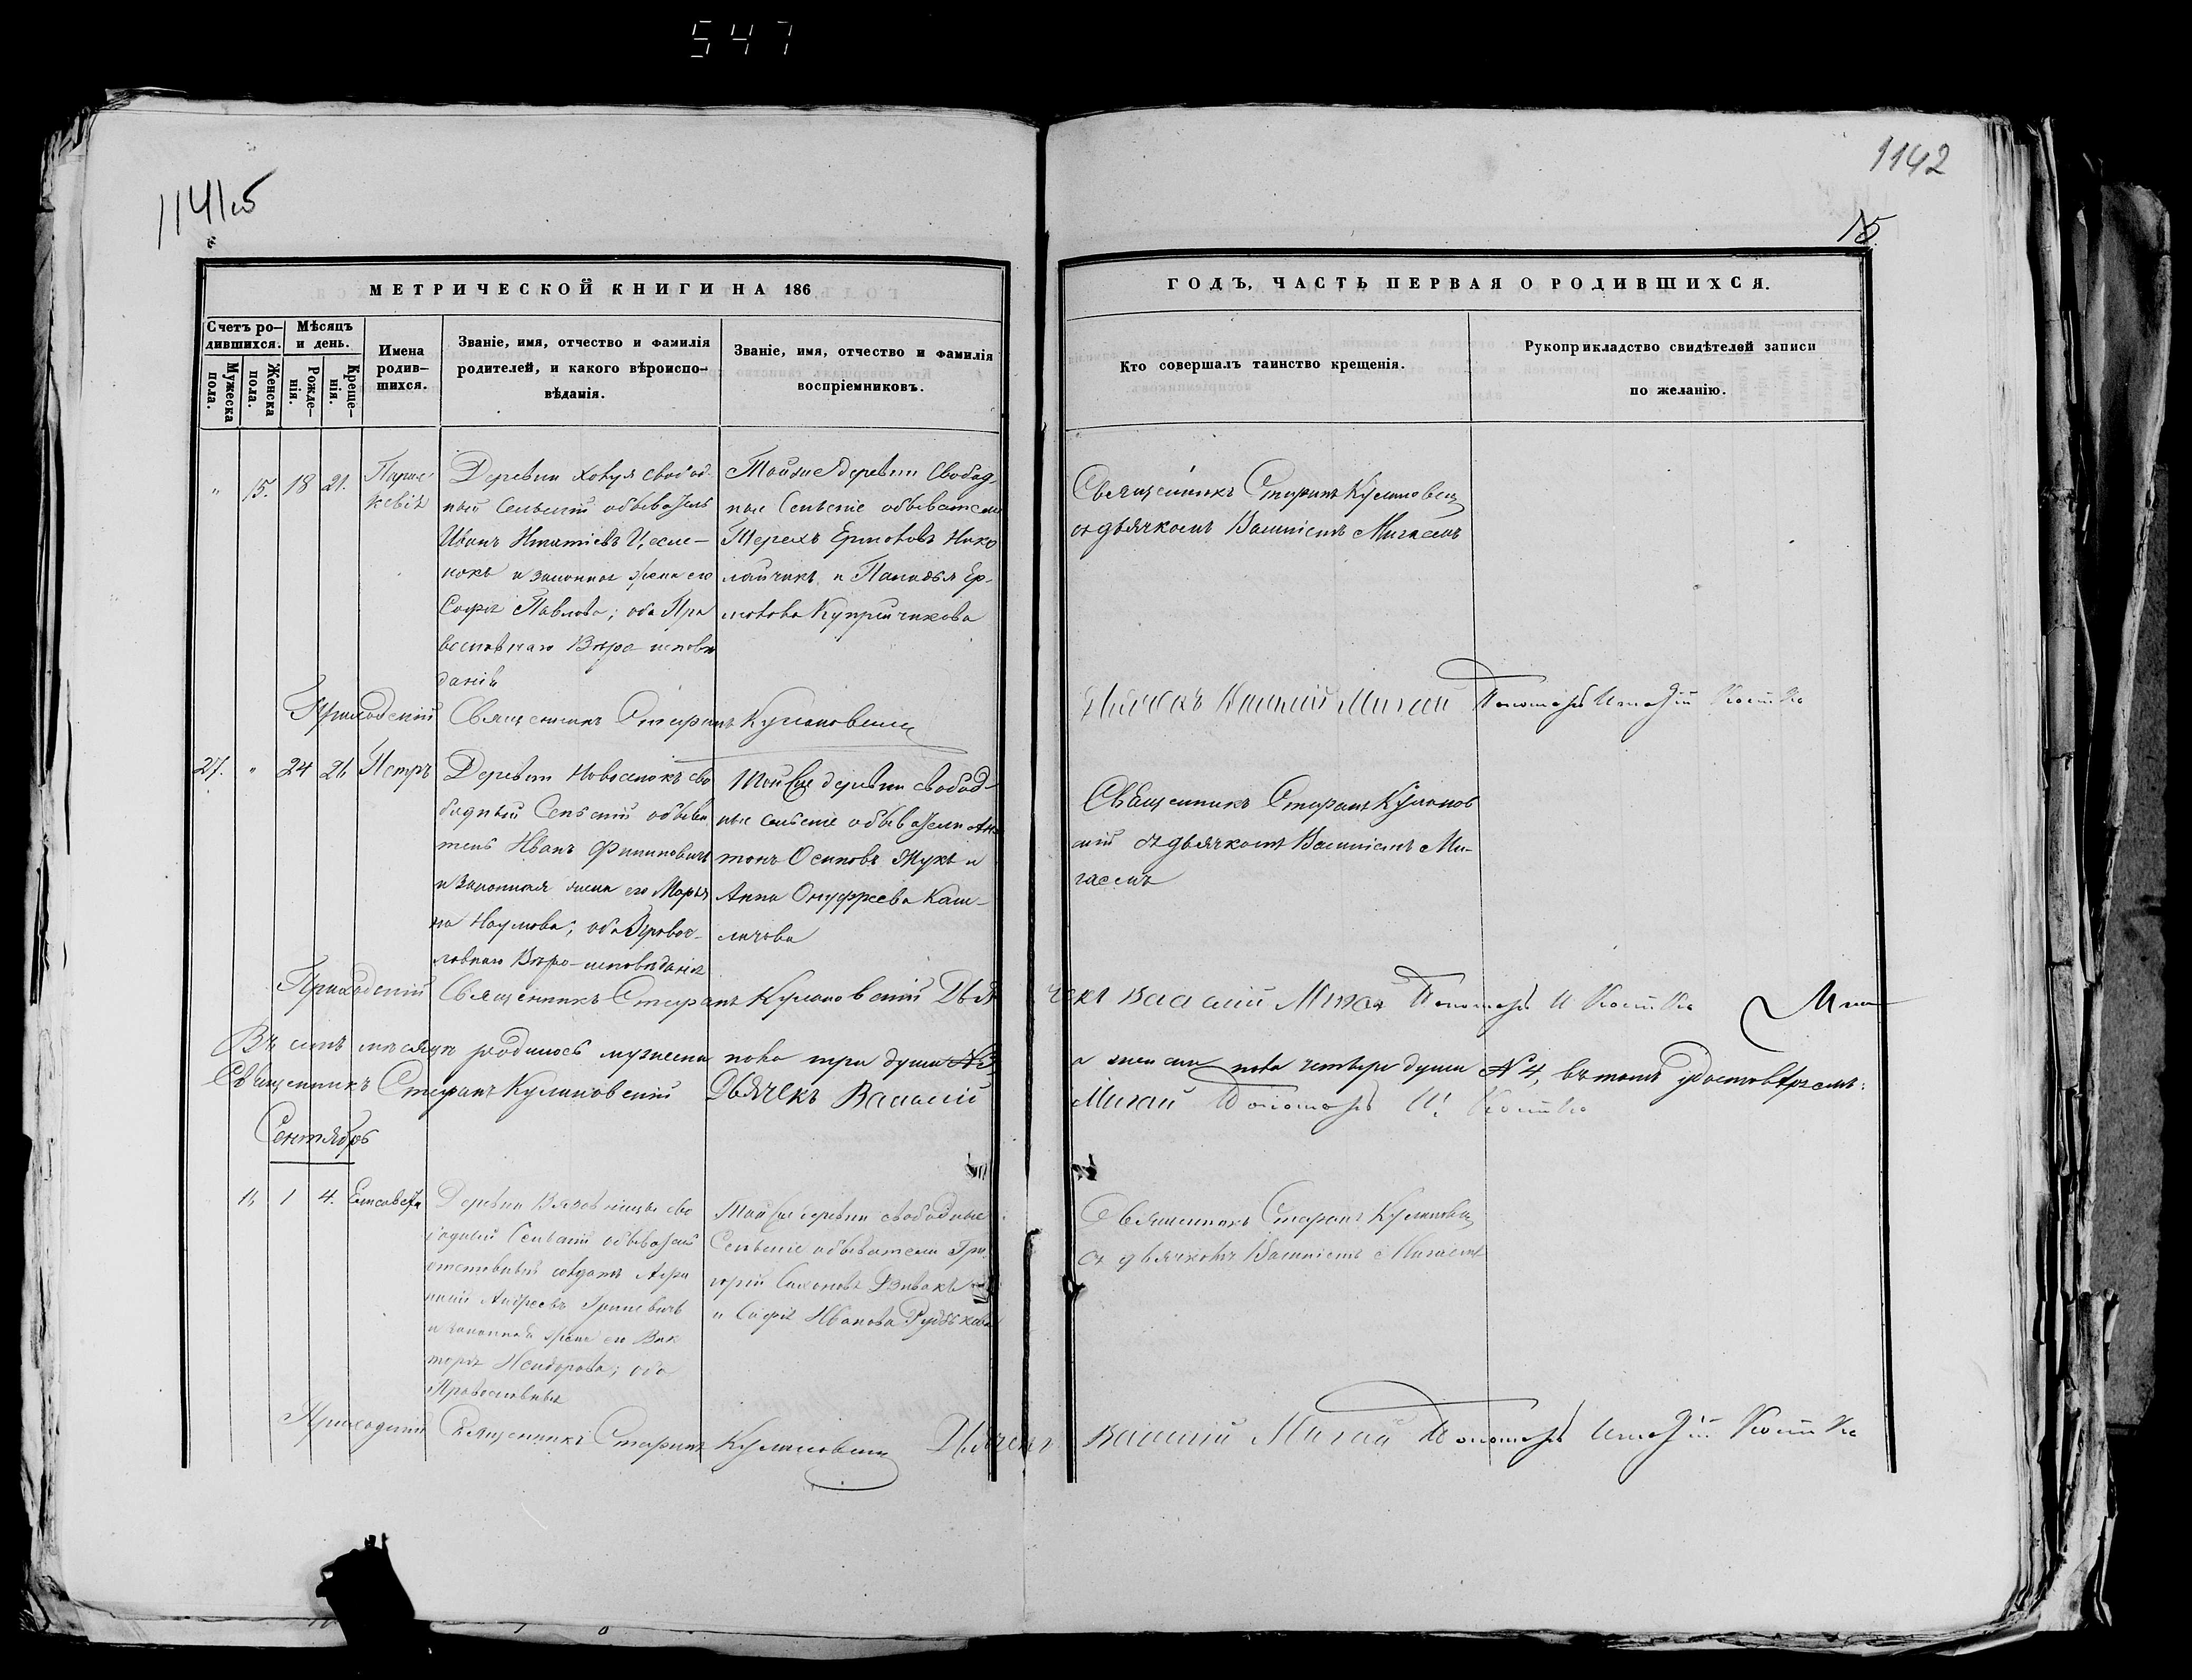 547
1141 об
1142
15
МЕТРИЧЕСКОЙ КНИГИ НА 186
Счетъ ро-
дившихся.
Мужеска пола.
Женска пола.
Мѣсяцъ
и день.
Рожде-
нія.
Креще-
нія.
Имена
родив-
шихся.
Званіе, имя, отчество и фамилія
родителей, и какого вѣроиспо-
вѣданія.
Званіе, имя, отчество и фамилія
воспріемниковъ.
ГОДЪ, ЧАСТЬ ПЕРВАЯ О РОДИВШИХСЯ.
Кто совершалъ таинство крещенія.
Рукоприкладство свидѣтелей записи
по желанію.
" 15. 18 21.
Парас
кевія
Деревни свобод-
ный Сельскій обыватель
Иванъ Игнатіевъ
и законная жена его
Софія Павлова; оба Пра
вославнаго Вѣро исповѣ
данія
Той же деревни Свобод-
ные Сельскіе обыватели
Ермоловъ Нико
лайчикъ и Ер-
молова
Священникъ Стефанъ Кулаковскій
съ дьячкомъ Василіемъ Мигаемъ
Приходскій Священникъ Стефанъ Кулаковскій
Дьячекъ Василій Мигай Пономарь Игнатій
27. " 24 26 Петръ
Деревни Новоселокъ сво
бодный Сельскій обыва
тель Иванъ
и законная жена его Марья
на Наумова; оба Правос-
лавнаго Вѣро-исповѣданія
Той же деревни свобод-
ные сельскіе обыватели Ан
тонъ Осиповъ Жукъ и
Анна Онуфреева
Священникъ Стефанъ Кулаков
скій съ дьячкомъ Василіемъ Ми-
гаемъ
Приходскій Священникъ Стефанъ Кулаковскій Дья
чекъ Василій Мигай Пономарь И
Въ семъ мѣсяцѣ родилось мужеска пола три души №3
а женска пола четыре души №4, въ томъ удостовѣряемъ:
Священникъ Стефанъ Кулаковскій Дьячекъ Василій
Мигай Пономарь И.
Сентябрь
16 1 4. Елисавета
Деревни сво
бодный Сельскій обыватель
отставный солдатъ
Андреевъ Гриневичъ
и законная жена его Вик
торія Исидорова; оба
Православные
Той же деревни свободные
Сельскіе обыватели Гри
горій
и Софія Иванова
Священникъ Стефанъ Кулаковскій
съ дьячкомъ Василіемъ Мигаемъ
Приходскій Священникъ Стефанъ Кулаковскій Дьячекъ
Василій Мигай Пономарь Игнатій